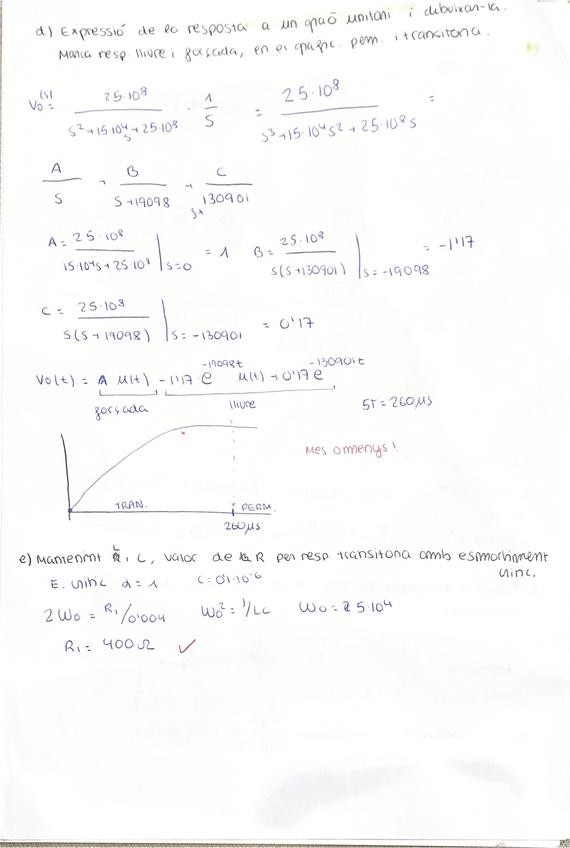 d) Expressió de la resposta a un graó unitari i dibuixar-la.
Marca resp. lliure i forçada, en el gràfic. perm. i transitoria.
Vo(s) = 25·10⁸ / s²+15·10⁴s+25·10⁸ · 1/s = 25·10⁸ / s³+15·10⁴s²+25·10⁸s =
A/s + B/s+19098 + C/s+130901
A = 25·10⁸ / 15·10⁴s+25·10⁸ |s=0 = 1 B = 25·10⁸ / s(s+130901) |s=-19098 = -1'17
C = 25·10⁸ / s(s+19098) |s=-130901 = 0'17
Vo(t) = A μ(t) - 1'17·e^-19098t μ(t) + 0'17 e^-130901t
forçada lliure 5τ = 260μs
Mes o menys!
TRAN. PERM.
260μs
e) Mantenint L i C, valor de la R per resp transitoria amb esmorteiment
crític.
E. crític α = 1 C = 0'1·10⁻⁶
2Wo = R₁/0'004 Wo² = 1/LC Wo = 5·10⁴
R₁ = 400Ω ✓